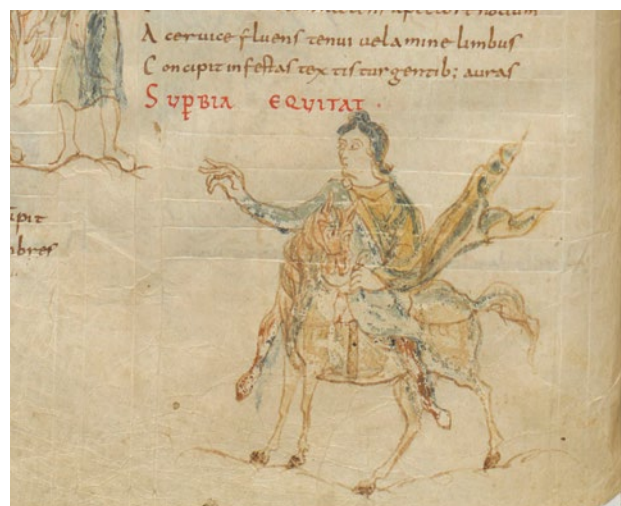 A ceruice fluens tenui uelamine limbus
C oncipit infestas textis turgentib; auras
SUPBIA EQUITAT.
ipit
bres